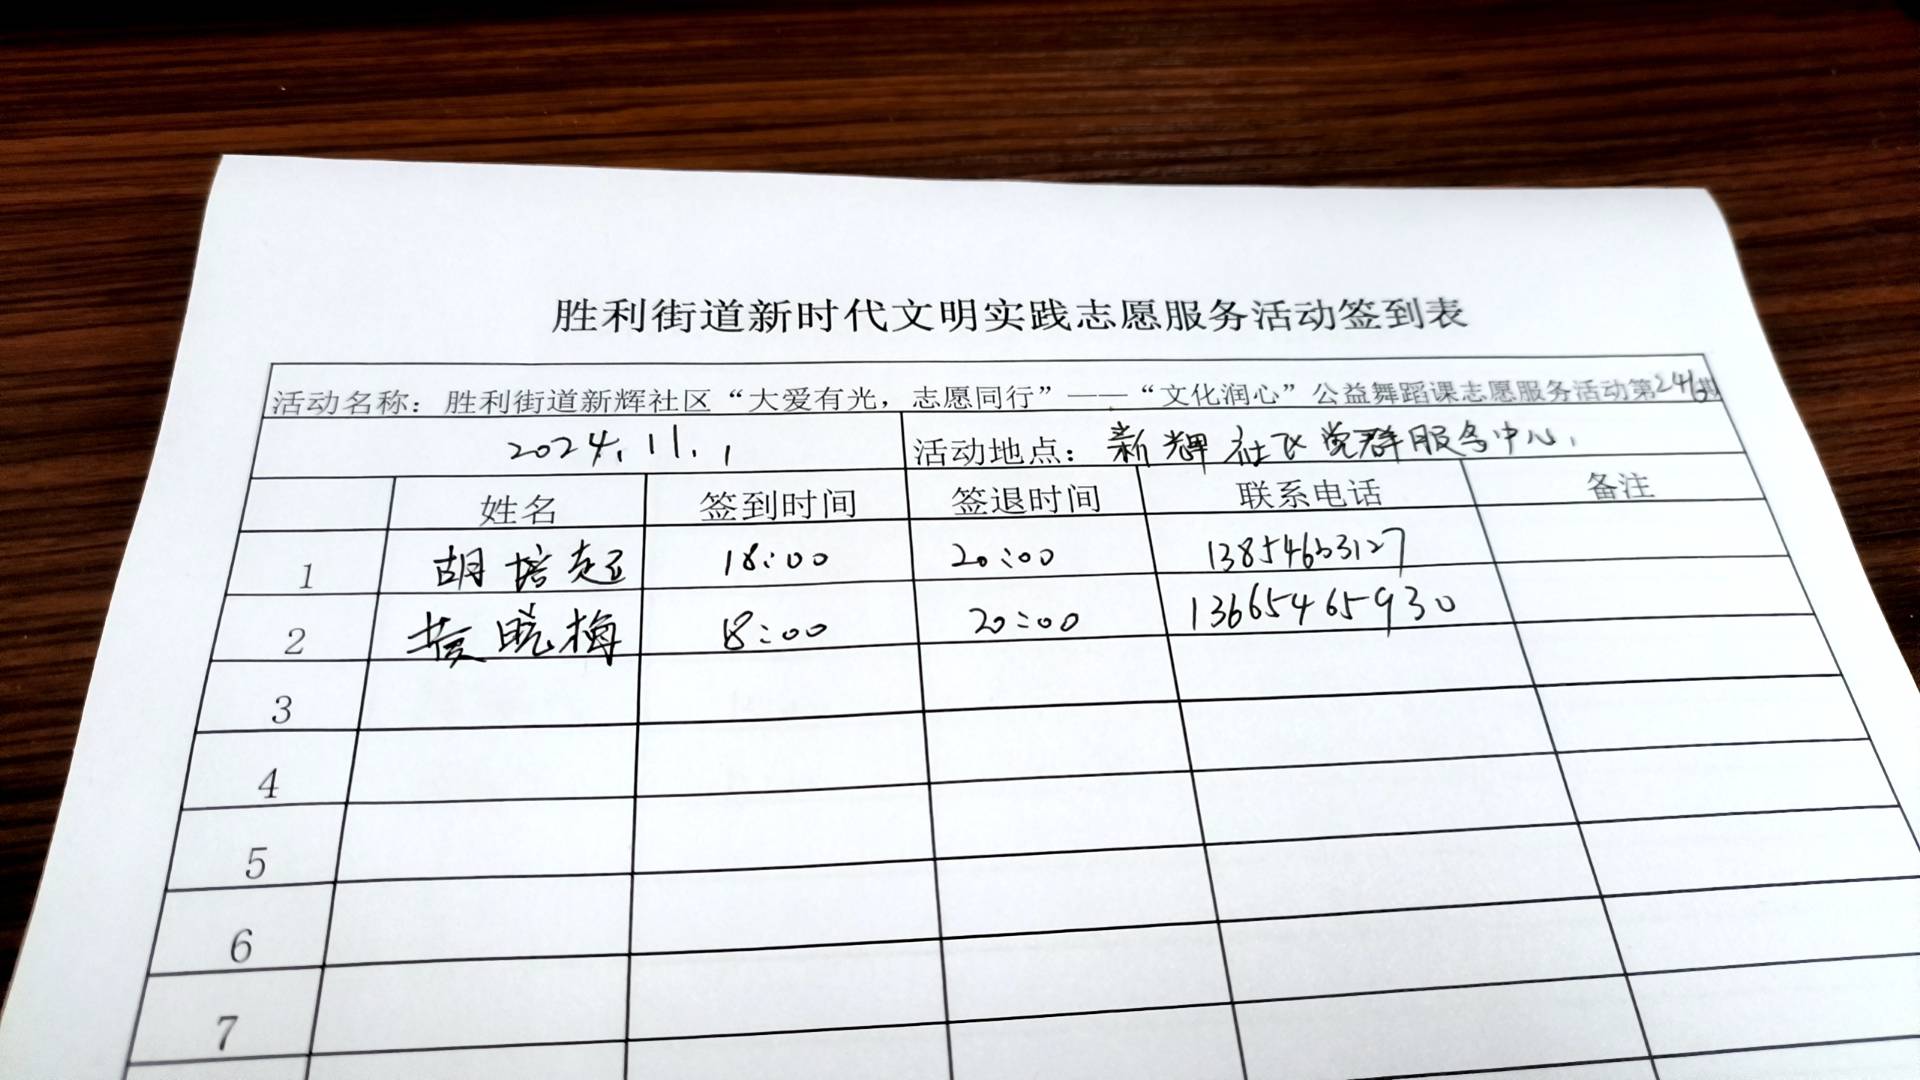 胜利街道新时代文明实践志愿服务活动签到表
活动名称：胜利街道新辉社区“大爱有光，志愿同行”——“文化润心”公益舞蹈课志愿服务活动第246期
2024.11.1 活动地点：新辉社区党群服务中心
姓名 签到时间 签退时间 联系电话 备注
1 胡培超 18:00 20:00
2 黄晓梅 18:00 20:00 13665465930
3
4
5
6
7